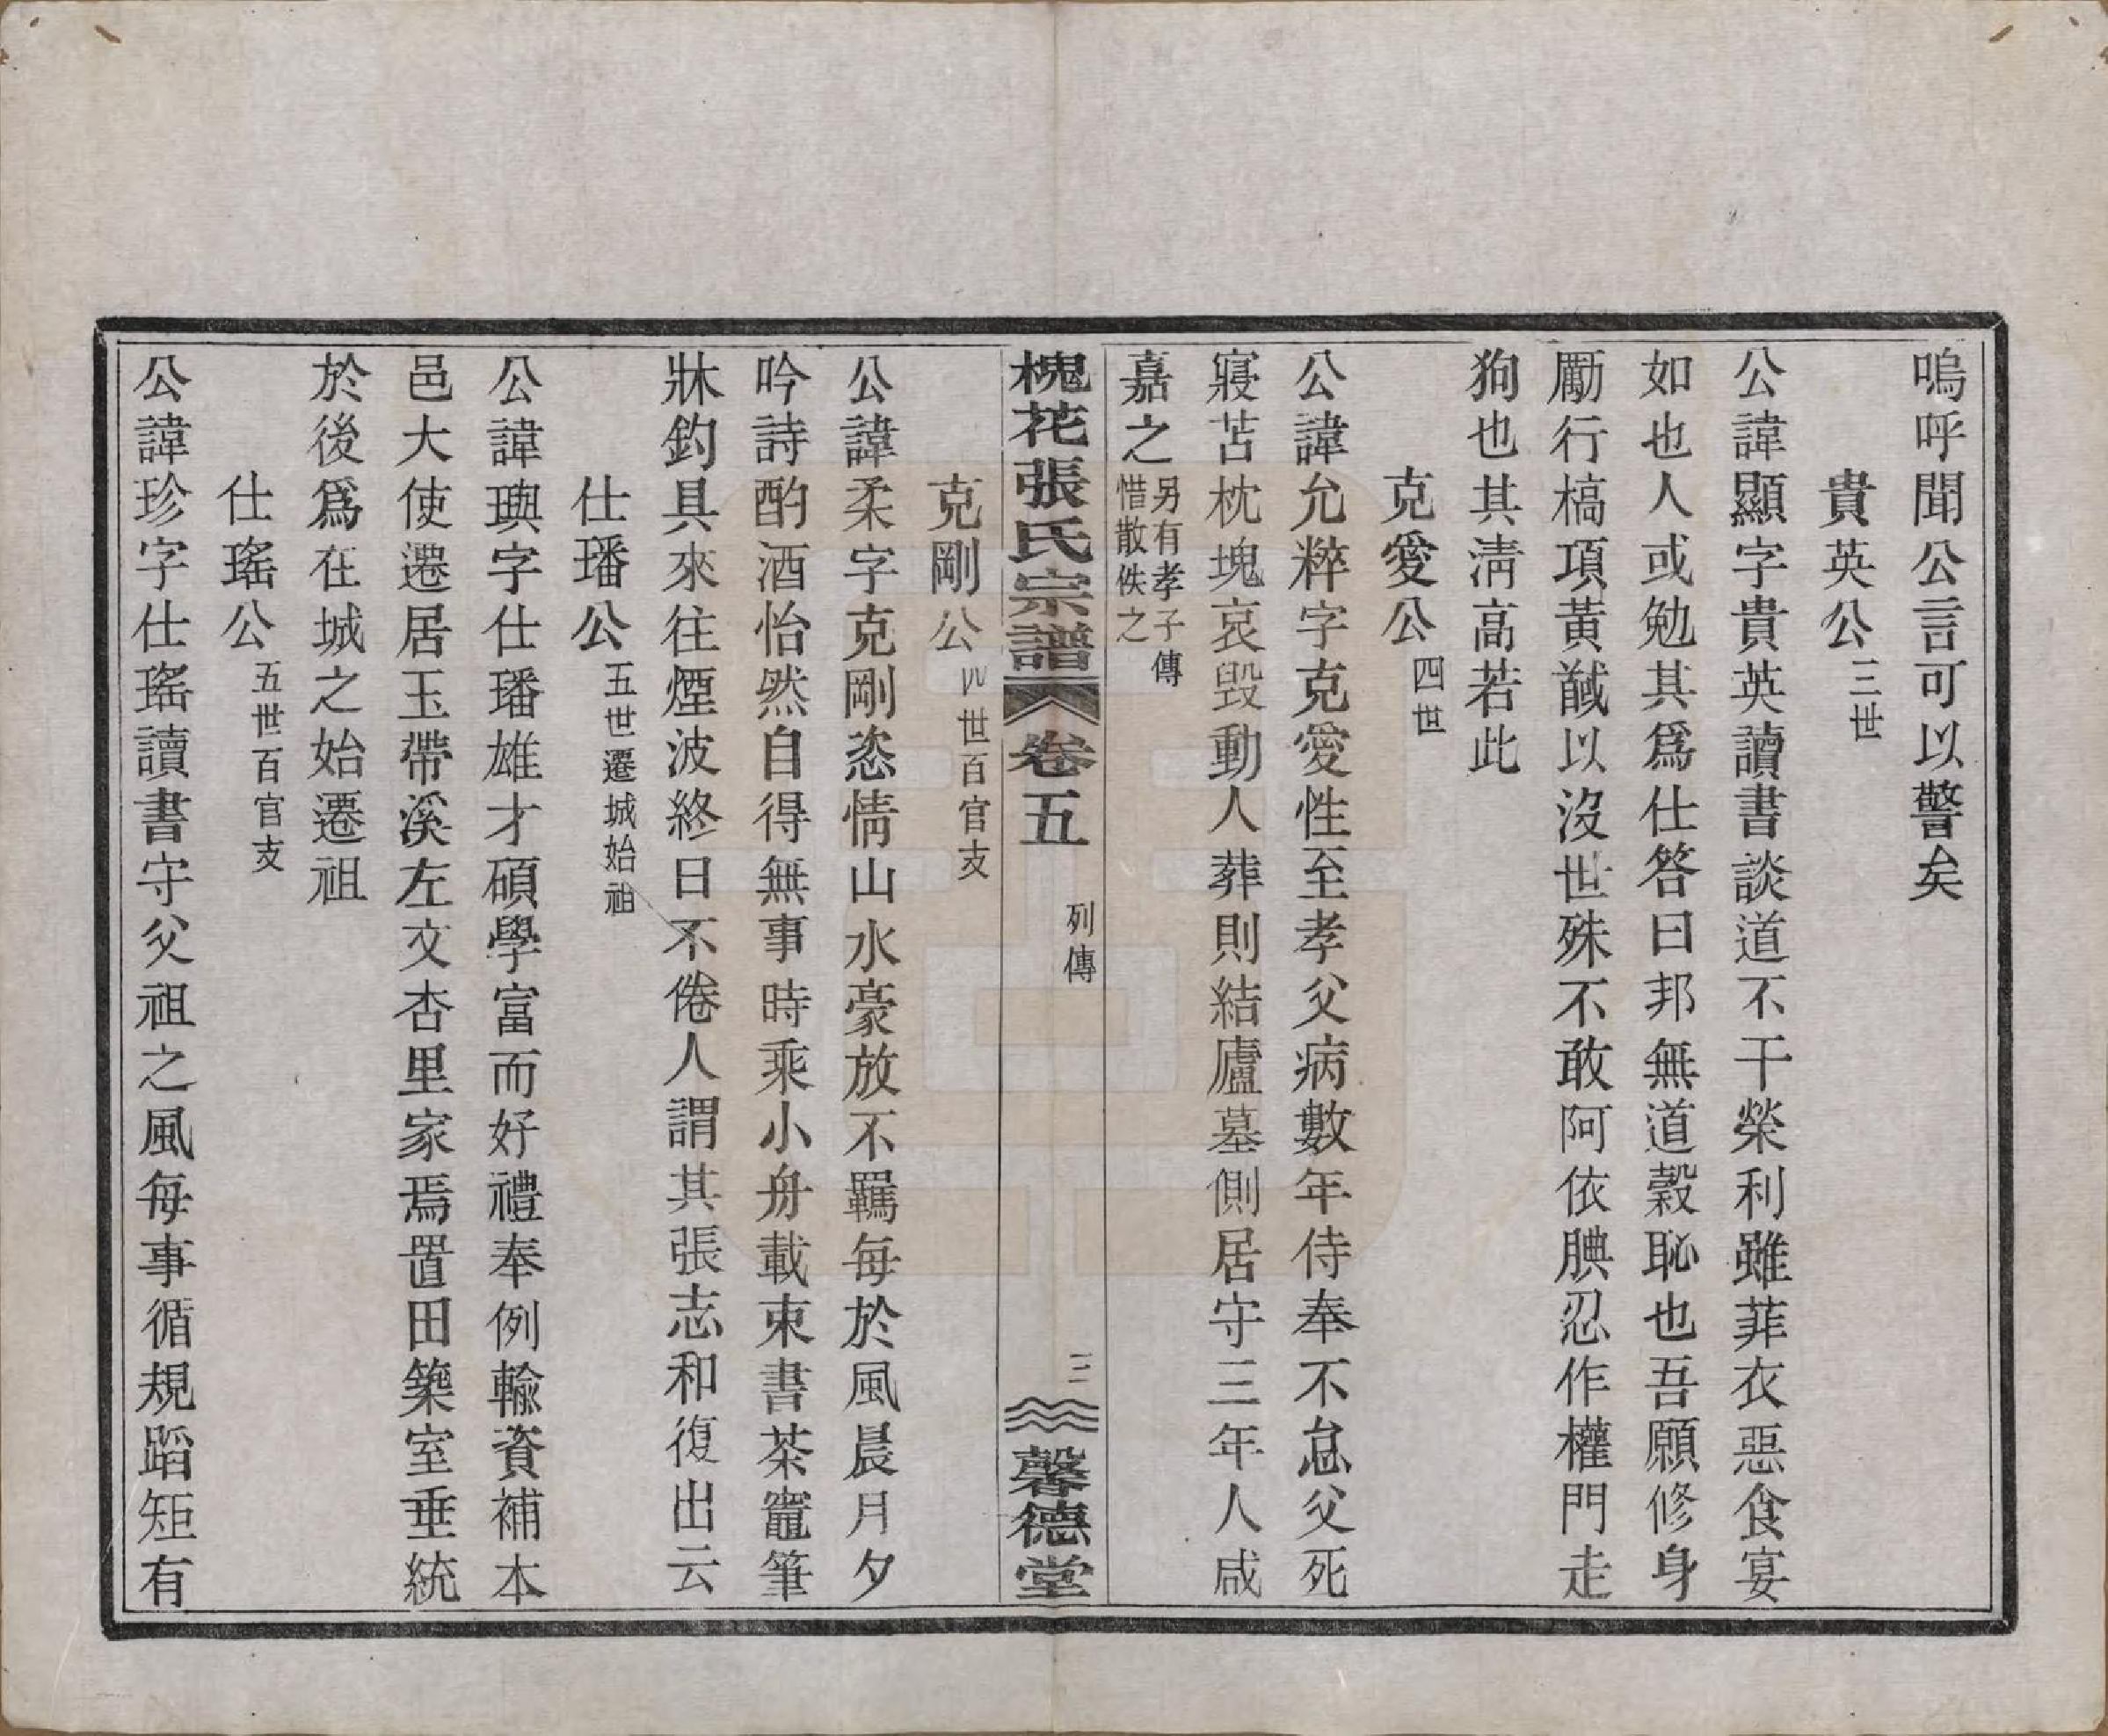 嗚呼聞公言可以警矣
貴英公三世
公諱顯字貴英讀書談道不干榮利雖菲衣惡食宴
如也人或勉其爲仕答曰邦無道穀恥也吾願修身
勵行槁項黃馘以沒世殊不敢阿依腆忍作權門走
狗也其淸高若此
克愛公四世
公諱允粹字克愛性至孝父病數年侍奉不怠父死
寢苫枕塊哀毀動人葬則結廬墓側居守三年人咸
嘉之另有孝子傳惜散佚之
槐花張氏宗譜 卷五 列傳 三 馨德堂
克剛公四世百官支
公諱柔字克剛恣情山水豪放不羈每於風晨月夕
吟詩酌酒怡然自得無事時乘小舟載束書茶竈筆
牀釣具來往煙波終日不倦人謂其張志和復出云
仕璠公五世遷城始祖
公諱璵字仕璠雄才碩學富而好禮奉例輸資補本
邑大使遷居玉帶溪左文杏里家焉置田築室垂統
於後爲在城之始遷祖
仕瑤公五世百官支
公諱珍字仕瑤讀書守父祖之風每事循規蹈矩有